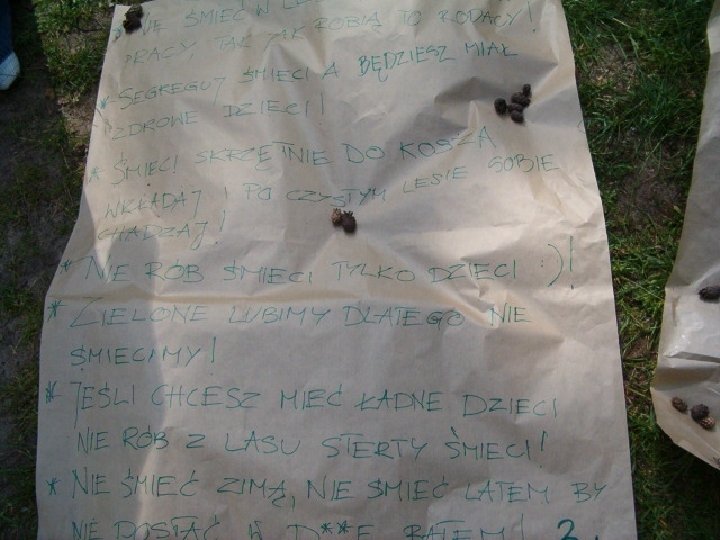 * NIE ŚMIEĆ W
PRACY, TAK JAK ROBIĄ TO RODACY!
* SEGREGUJ ŚMIECI A BĘDZIESZ MIAŁ
ZDROWE DZIECI!
* ŚMIECI SKRZĘTNIE DO KOSZA
WKŁADAJ I PO CZYSTYM LESIE SOBIE
CHADZAJ!
* NIE RÓB ŚMIECI TYLKO DZIECI :)!
* ZIELONE LUBIMY DLATEGO NIE
ŚMIECIMY!
* JEŚLI CHCESZ MIEĆ ŁADNE DZIECI
NIE RÓB Z LASU STERTY ŚMIECI!
* NIE ŚMIEĆ ZIMĄ, NIE ŚMIEĆ LATEM BY
NIE DOSTAĆ W D**E BATEM! 2.